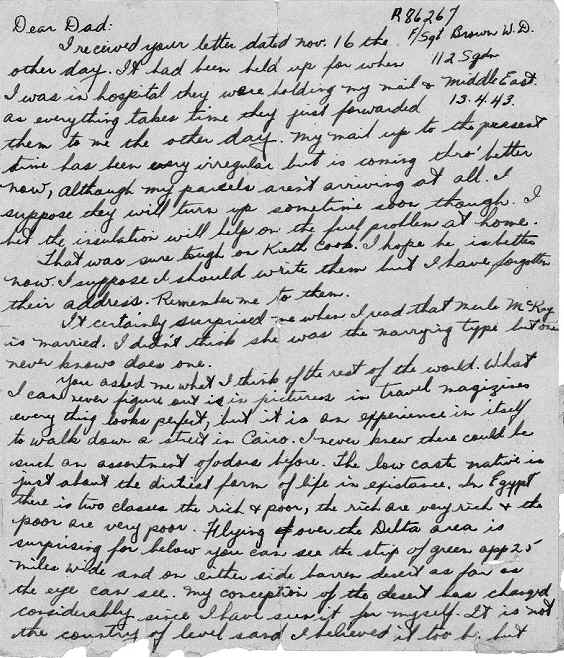 R86267
Dear Dad:
F/Sgt Brown W.D.
I received your letter dated nov. 16 the
112 Sqdn
other day. It had been held up for when
Middle East.
I was in hospital they were holding my mail &
13.4.43.
as everything takes time they just forwarded
them to me the other day. My mail up to the present
time has been very irregular but is coming thro' better
now, although my parsels aren't arriving at all. I
suppose they will turn up sometime soon though. I
bet the insulation will help on the fuel problem at home.
That was sure tough on Kieth Cook. I hope he is better
now. I suppose I should write them but I have forgotten
their address. Remember me to them.
It certainly surprised me when I read that Merle McKay
is married. I didn't think she was the marrying type but one
never knows does one.
You asked me what I think of the rest of the world. What
I can never figure out is in pictures in travel magizines
every thing looks perfect, but it is an experience in itself
to walk down a street in Cairo. I never knew there could be
such an assortment of odors before. The low caste native is
just about the dirtiest form of life in existance. In Egypt
there is two classes the rich & poor, the rich are very rich & the
poor are very poor. Flying over the Delta area is
surprising for below you can see the strip of green app 25
miles wide and on either side barren desert as far as
the eye can see. My conception of the desert has changed
considerably since I have seen it for myself. It is not
the country of level sand I believed it too b. but